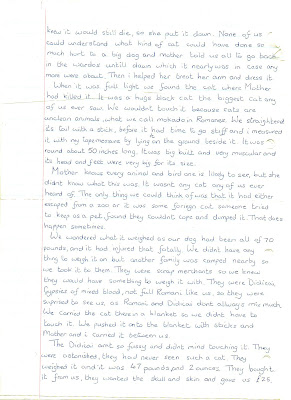 knew it would still die, so she put it down. None of us
could understand what kind of cat could have done so
much hurt to a big dog and Mother told us all to go back
in the wardos untill dawn which it nearly was in case any
more were about. Then i helped her treat her arm and dress it.
When it was full light we found the cat where Mother
had killed it. It was a huge black cat the biggest cat any
of us ever saw. We wouldn't touch it because cats are
unclean animals, what we call mokado in Romanes. We straightend
its tail with a stick, before it had time to go stiff and i measured
it with my tapemeasure by lying on the ground beside it. It was
round about 50 inches long. It was big built and very muscular and
its head and feet were very big for its size.
Mother knows every animal and bird one is likely to see, but she
didnt know what this was. It wasnt any cat any of us ever
heard of. The only thing we could think of was that it had either
escaped from a zoo or it was some foreign cat someone tried
to keep as a pet, found they couldnt cope and dumped it. That does
happen sometimes.
We wondered what it weighed as our dog had been all of 70
pounds, and it had injured that fatally. We didnt have any
thing to weigh it on but another family was camped nearby so
we took it to them. They were scrap merchants so we knew
they would have something to weigh it with. They were Didicai,
Gypsies of mixed blood, not full Romani like us, so they were
suprised to see us, as Romani and Didicai dont always mix much.
We carried the cat there in a blanket so we didnt have to
touch it. We pushed it onto the blanket with sticks and
Mother and i carried it between us.
The Didicai arnt so fussy and didnt mind touching it. They
were astonished, they had never seen such a cat. They
weighed it and it was 47 pounds and 2 ounces. They bought
it from us, they wanted the skull and skin and gave us £25.